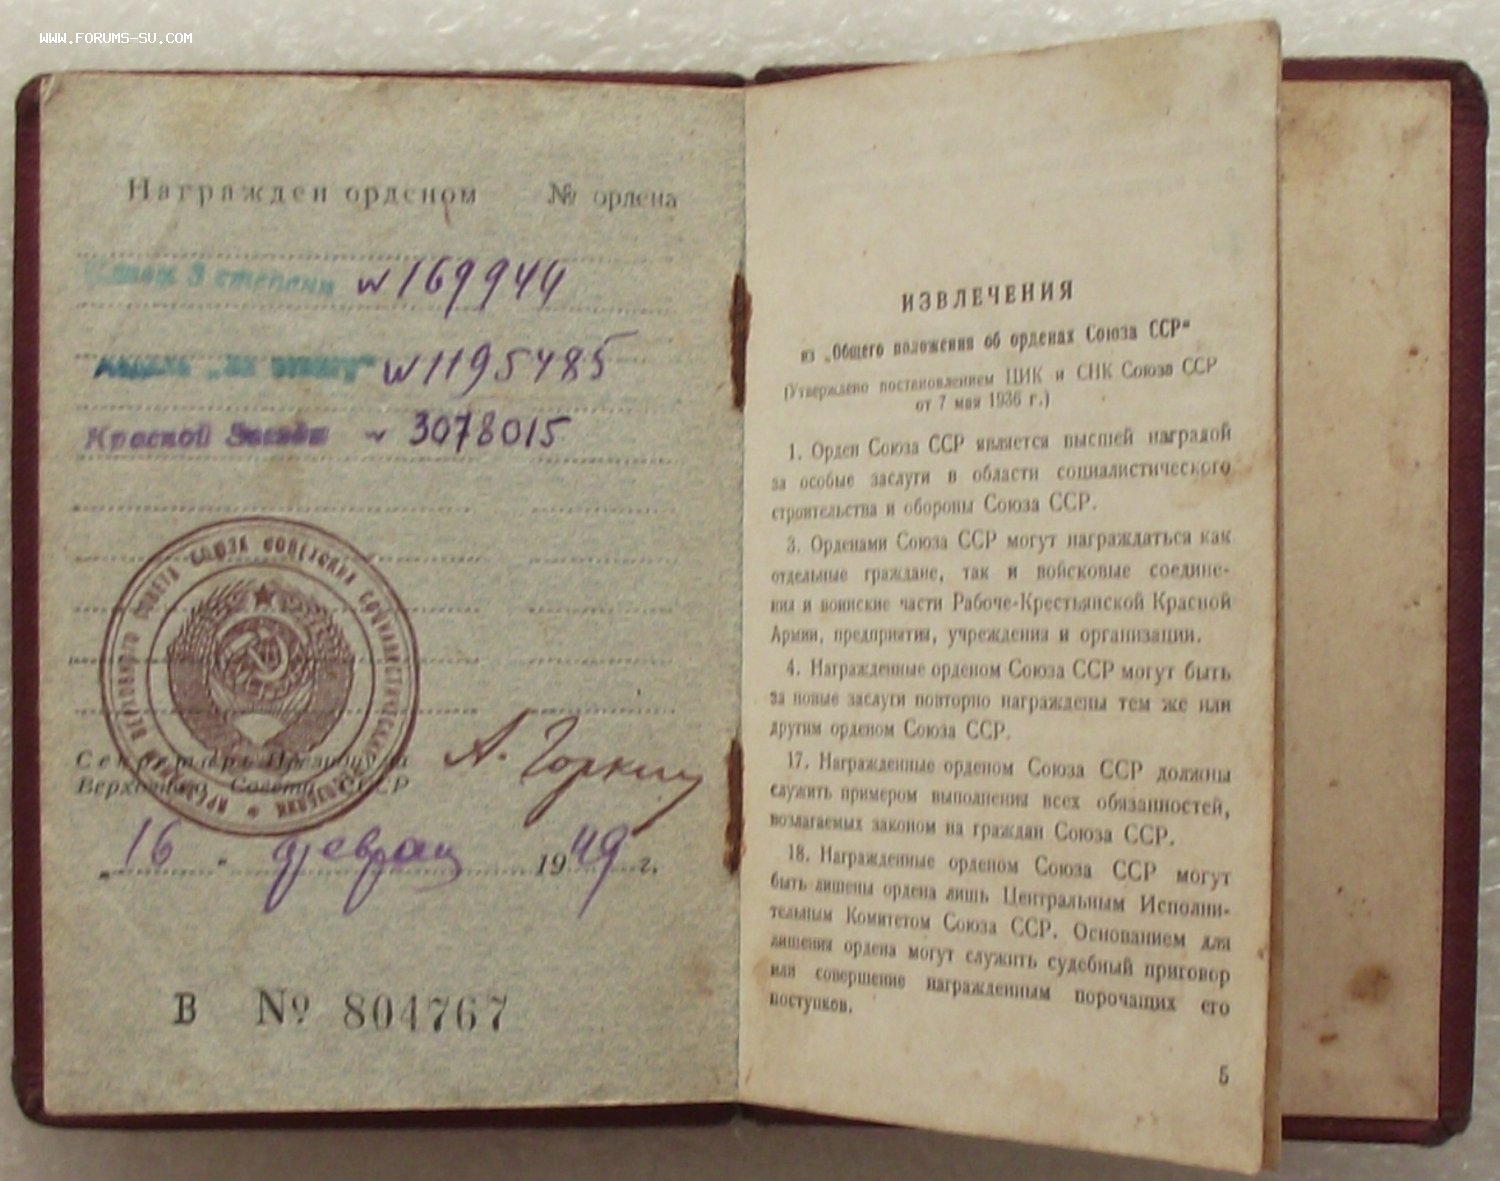 WWW.FORUMS-SU.COM
Награжден орденом № ордена
Славы 3 степени № 169944
Медаль „За отвагу“ № 1195485
Красной Звезды № 3078015
Секретарь Президиума
Верховного Совета СССР
А. Горкин
„16“ февраля 1949 г.
В № 804767
ИЗВЛЕЧЕНИЯ
из „Общего положения об орденах Союза ССР“
(Утверждено постановлением ЦИК и СНК Союза ССР
от 7 мая 1936 г.)
1. Орден Союза ССР является высшей наградой
за особые заслуги в области социалистического
строительства и обороны Союза ССР.
3. Орденами Союза ССР могут награждаться как
отдельные граждане, так и войсковые соедине-
ния и воинские части Рабоче-Крестьянской Красной
Армии, предприятия, учреждения и организации.
4. Награжденные орденом Союза ССР могут быть
за новые заслуги повторно награждены тем же или
другим орденом Союза ССР.
17. Награжденные орденом Союза ССР должны
служить примером выполнения всех обязанностей,
возлагаемых законом на граждан Союза ССР.
18. Награжденные орденом Союза ССР могут
быть лишены ордена лишь Центральным Исполни-
тельным Комитетом Союза ССР. Основанием для
лишения ордена могут служить судебный приговор
или совершение награжденным порочащих его
поступков.
5